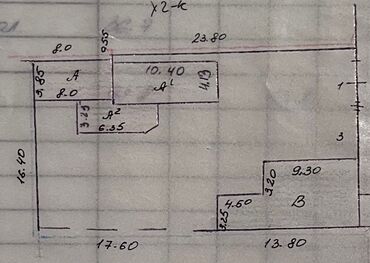 х2-к
8.0
0.55
23.80
3.85
А
8.0
10.40
А¹
4.13
1
3.29
А²
6.35
3
16.40
9.30
3.20
4.60
В
3.25
17.60
13.80